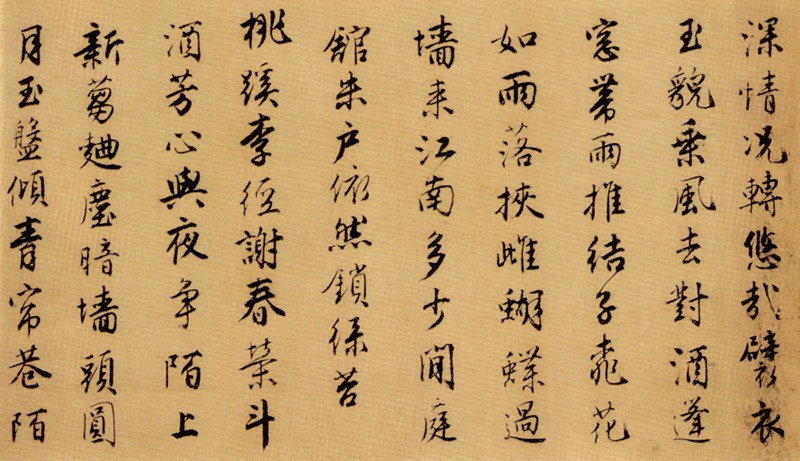 深情況轉悠哉襞衣
玉貌乘風去對酒蓬
窓帶雨推結子桃花
如雨落挾雌蝴蝶過
墻來江南多少閒庭
舘朱戶依然鎖綠苔
桃蹊李徑謝春榮斗
酒芳心與夜爭陌上
新蒭麯塵暗墻頭圓
月玉盤傾青帘巷陌